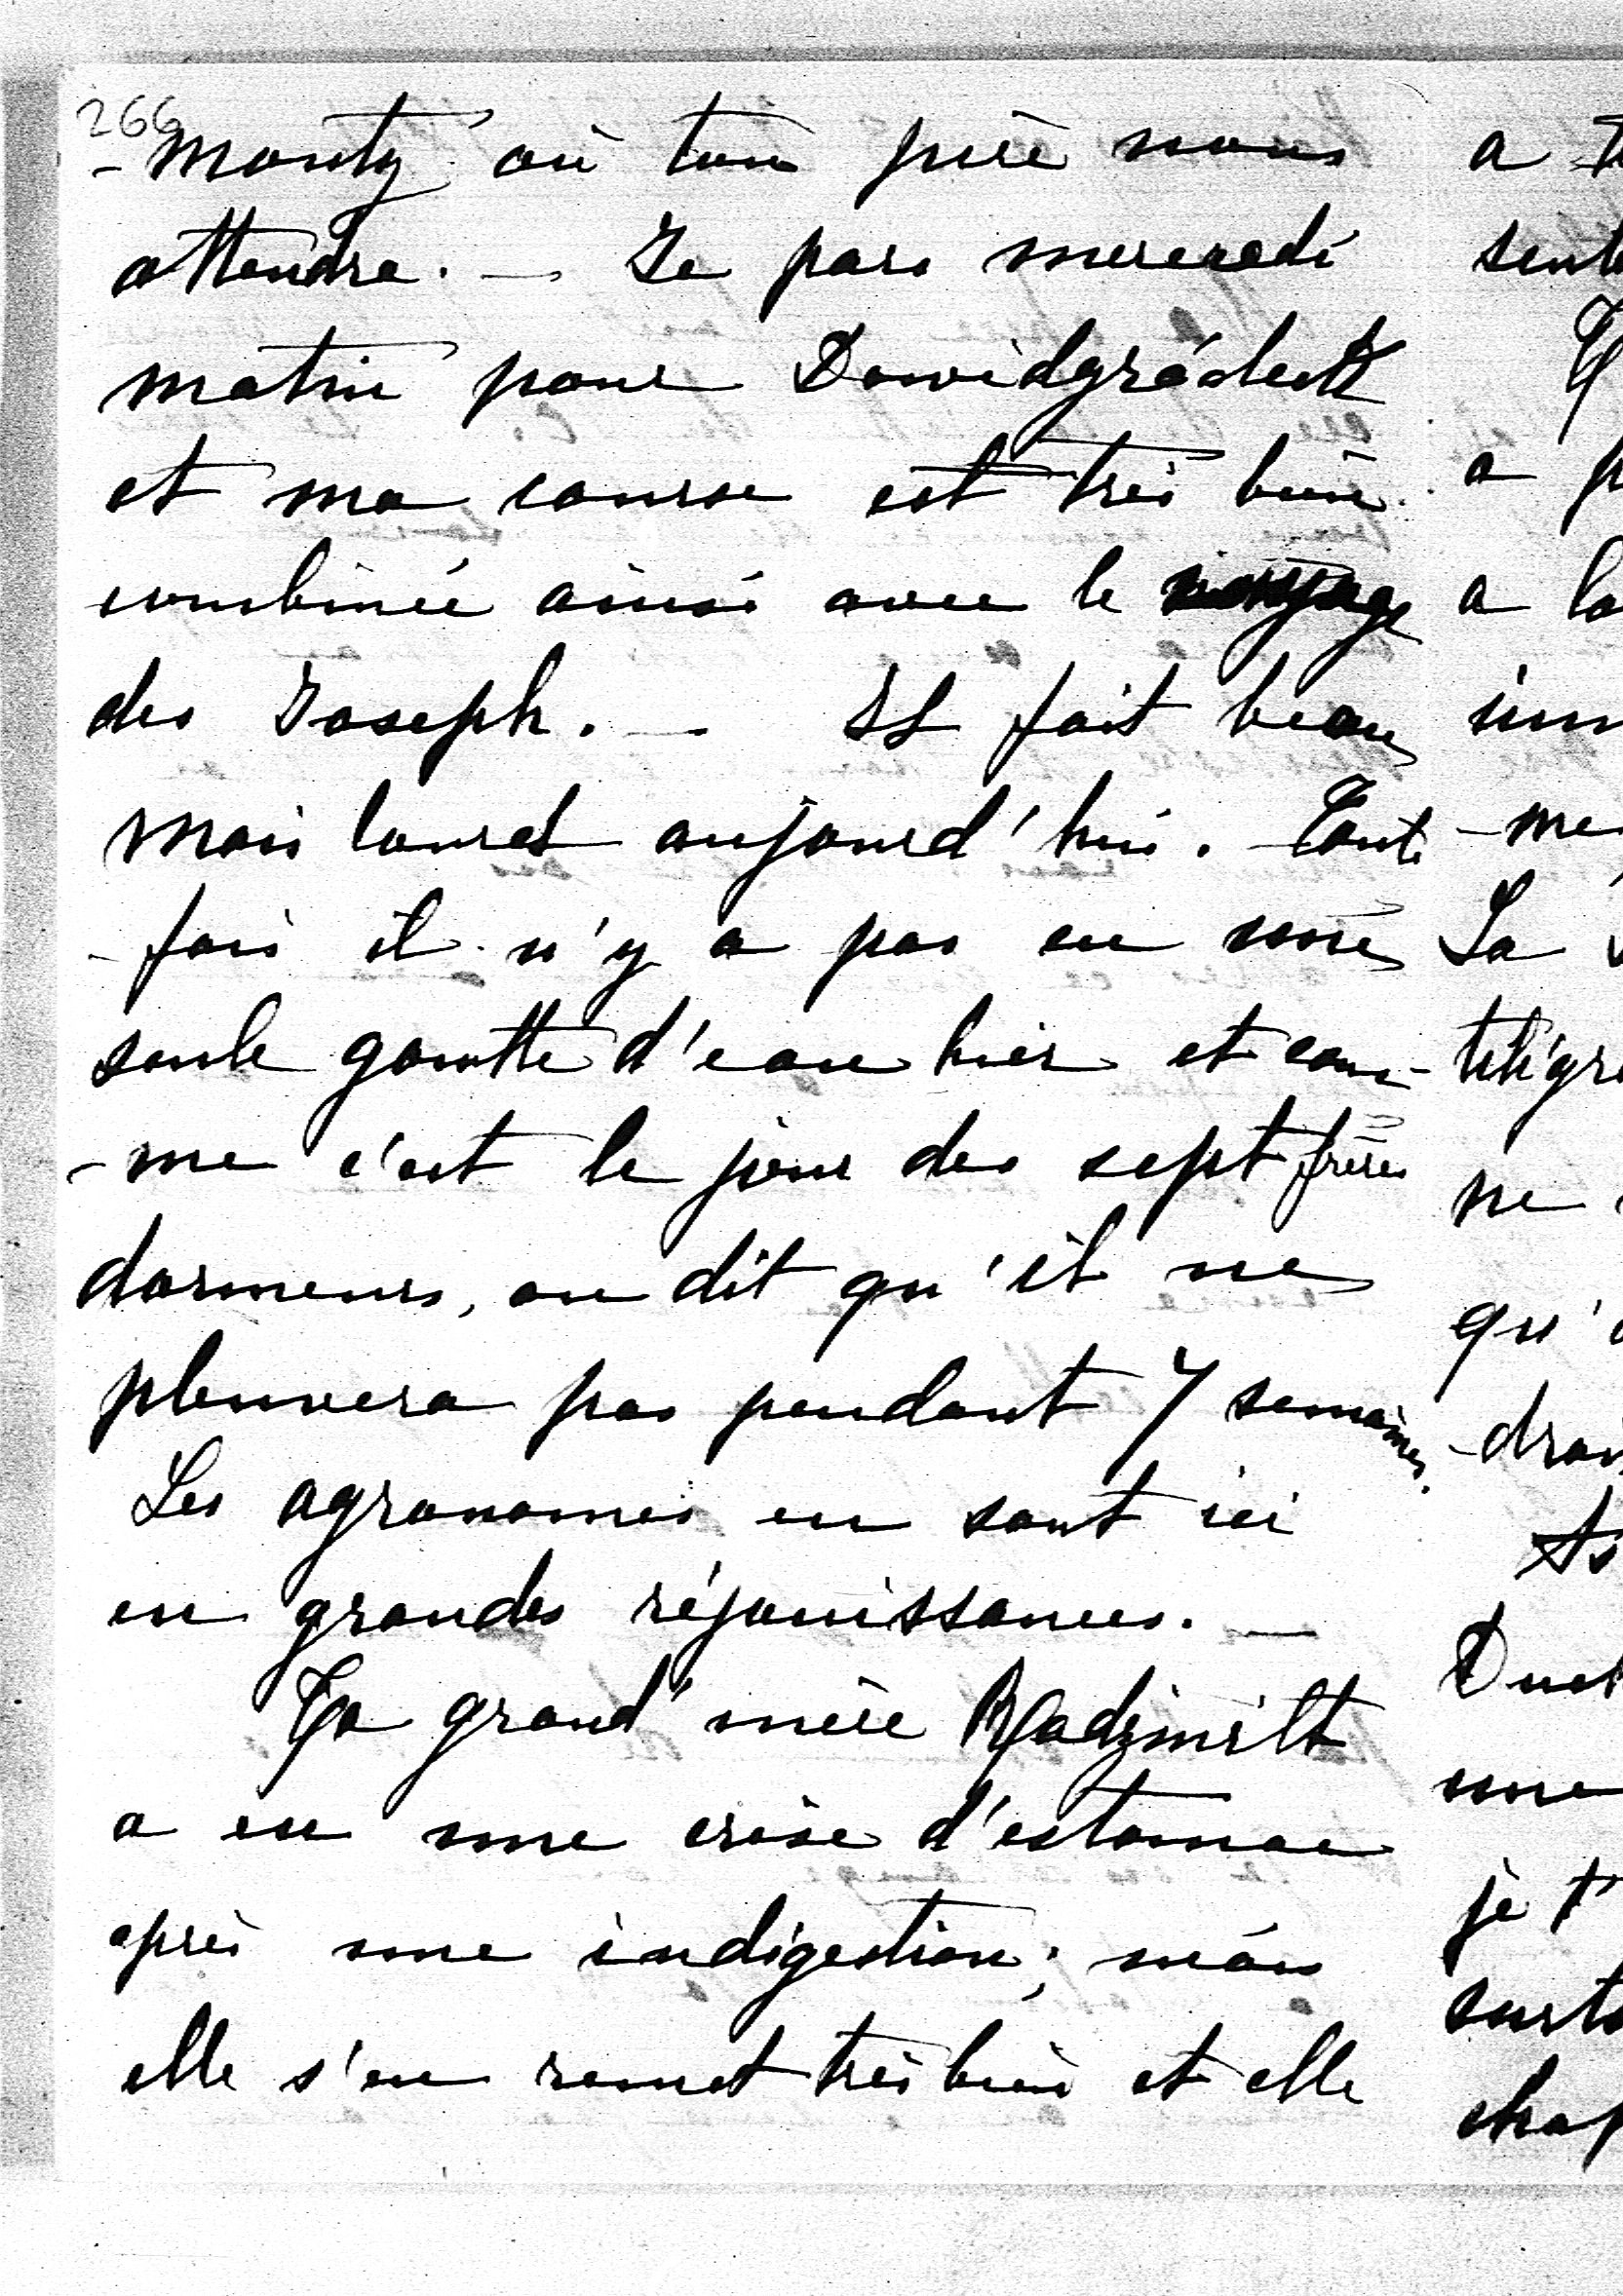 266
-monty où ton père nous
attendra. — Je pars mercredi
matin pour Dawidgródeck
et ma course est très bien
combinée ainsi avec le voyage
des Joseph. — Il fait beau
mais lourd aujourd'hui. Toute
-fois il n'y a pas eu une
seule goutte d'eau hier et com-
-me c'est le jour des sept frères
dormeurs, on dit qu'il ne
pleuvera pas pendant 7 semaines.
Les agronomes en sont ici
en grandes réjouissances. —
Ta grand'mère Radziwill
a eu une crise d'estomac
après une indigestion; mais
elle s'en remet très bien et elle
a
a
a
-me
La
ne
qu'
une
je t'